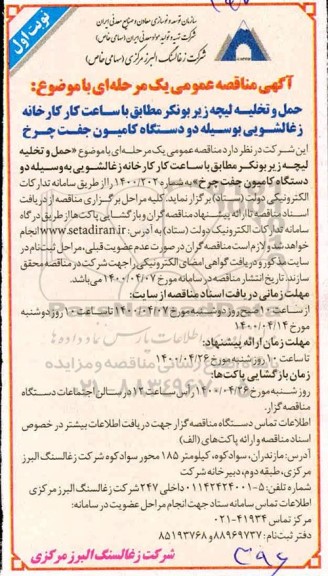 نوبت اول
سازمان توسعه و نوسازی معادن و صنایع معدنی ایران
شرکت تهیه و تولید مواد معدنی ایران (سهامی خاص)
شرکت زغالسنگ البرز مرکزی (سهامی خاص)
آگهی مناقصه عمومی یک مرحله‌ای با موضوع:
حمل و تخلیه لیچه زیر بونکر مطابق با ساعت کار کارخانه
زغالشویی بوسیله دو دستگاه کامیون جفت چرخ
این شرکت در نظر دارد مناقصه عمومی یک مرحله‌ای با موضوع «حمل و تخلیه
لیچه زیر بونکر مطابق با ساعت کار کارخانه زغالشویی به وسیله دو
دستگاه کامیون جفت چرخ» به شماره ۱۴۰۰/۲۰۲ را از طریق سامانه تدارکات
الکترونیکی دولت (ستاد) برگزار نماید. کلیه مراحل برگزاری مناقصه از دریافت
اسناد مناقصه تا ارائه پیشنهاد مناقصه‌گران و بازگشایی پاکت‌ها از طریق درگاه
سامانه تدارکات الکترونیک دولت (ستاد) به آدرس: www.setadiran.ir انجام
خواهد شد و لازم است مناقصه گران در صورت عدم عضویت قبلی، مراحل ثبت نام در
سایت مذکور و دریافت گواهی امضای الکترونیکی را جهت شرکت در مناقصه محقق
سازند. تاریخ انتشار مناقصه در سامانه مورخ ۱۴۰۰/۰۴/۰۷ می‌باشد.
مهلت زمانی دریافت اسناد مناقصه از سایت:
از ساعت ۱۰ صبح روز دوشنبه مورخ ۱۴۰۰/۰۴/۰۷ تا ساعت ۱۰ روز دوشنبه
مورخ ۱۴۰۰/۰۴/۱۴
مهلت زمان ارائه پیشنهاد:
تا ساعت ۱۰ روز شنبه مورخ ۱۴۰۰/۰۴/۲۶
زمان بازگشایی پاکت‌ها:
روز شنبه مورخ ۱۴۰۰/۰۴/۲۶ راس ساعت ۱۲ در سالن اجتماعات دستگاه
مناقصه گزار.
اطلاعات تماس دستگاه مناقصه گزار جهت دریافت اطلاعات بیشتر در خصوص
اسناد مناقصه و ارائه پاکت‌های (الف)
آدرس: مازندران، سوادکوه، کیلومتر ۱۸۵ محور سوادکوه شرکت زغالسنگ البرز
مرکزی، طبقه دوم، دبیرخانه شرکت
شماره تلفن: ۵-۰۱۱۴۲۴۲۴۰۰۱ داخلی ۲۴۷ شرکت زغالسنگ البرز مرکزی
اطلاعات تماس سامانه ستاد جهت انجام مراحل عضویت در سامانه:
مرکز تماس ۴۱۹۳۴-۰۲۱
دفتر ثبت نام: ۸۸۹۶۹۷۳۷ و ۸۵۱۹۳۷۶۸
شرکت زغالسنگ البرز مرکزی